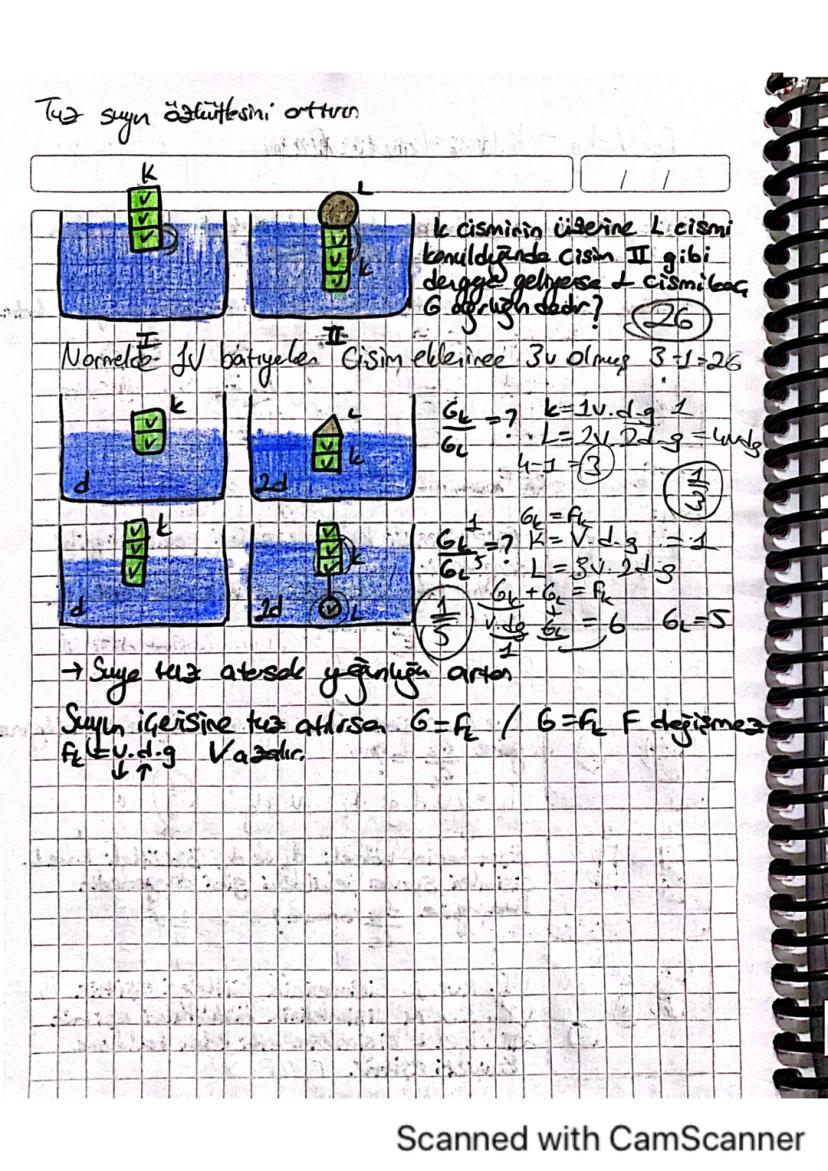 Tuz suyun özkütlesini arttırır
/ /
K
V
V
V
L
V
V
V
K
I
II
K cisminin üzerine L cismi
konulduğunda cisim II gibi
dengeye geliyorsa L cismi kaç
G ağırlığındadır? 2G
Normalde 1V batıyorken Cisim eklenince 3V olmuş 3-1=2G
K
V
V
d
L
V
V
K
2d
GK/GL = ? K=1V.d.g 1
L=2V.2d.g = 4vdg
4-1=3
1/3
K
V
V
V
d
V
V
V
K
V L
2d
GK = FK
GK 1 / GL 5 = ? K = V.d.g = 1
L = 3V.2d.g
GK + GL = FK
1/5
V.d.g + GL = 6 GL=5
1
→ Suya tuz atarsak yoğunluğu artar
Suyun içerisine tuz atılırsa G=FK / G=FK F değişmez
FK = V.d.g V azalır.
↓ ↑
Scanned with CamScanner